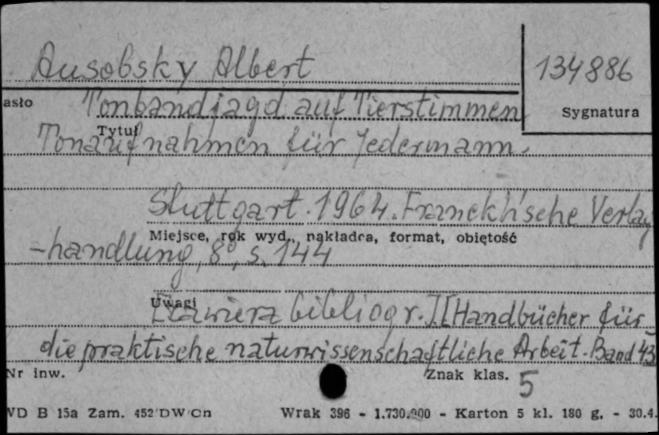 Ausobsky Albert
134886
asło
Sygnatura
Tonbandjagd auf Tierstimmen
Tytuł
Tonaufnahmen für Jedermann.
Stuttgart. 1964. Franckh'sche Verlag
Miejsce, rok wyd., nakładca, format, objętość
-handlung, 8°, s. 144
Uwagi
Zawiera bibliogr. II Handbücher für
die praktische naturwissenschaftliche Arbeit. Band 43
Nr inw.
Znak klas. 5
VD B 15a Zam. 452 DW Cn Wrak 396 - 1.730.000 - Karton 5 kl. 180 g. - 30.4.